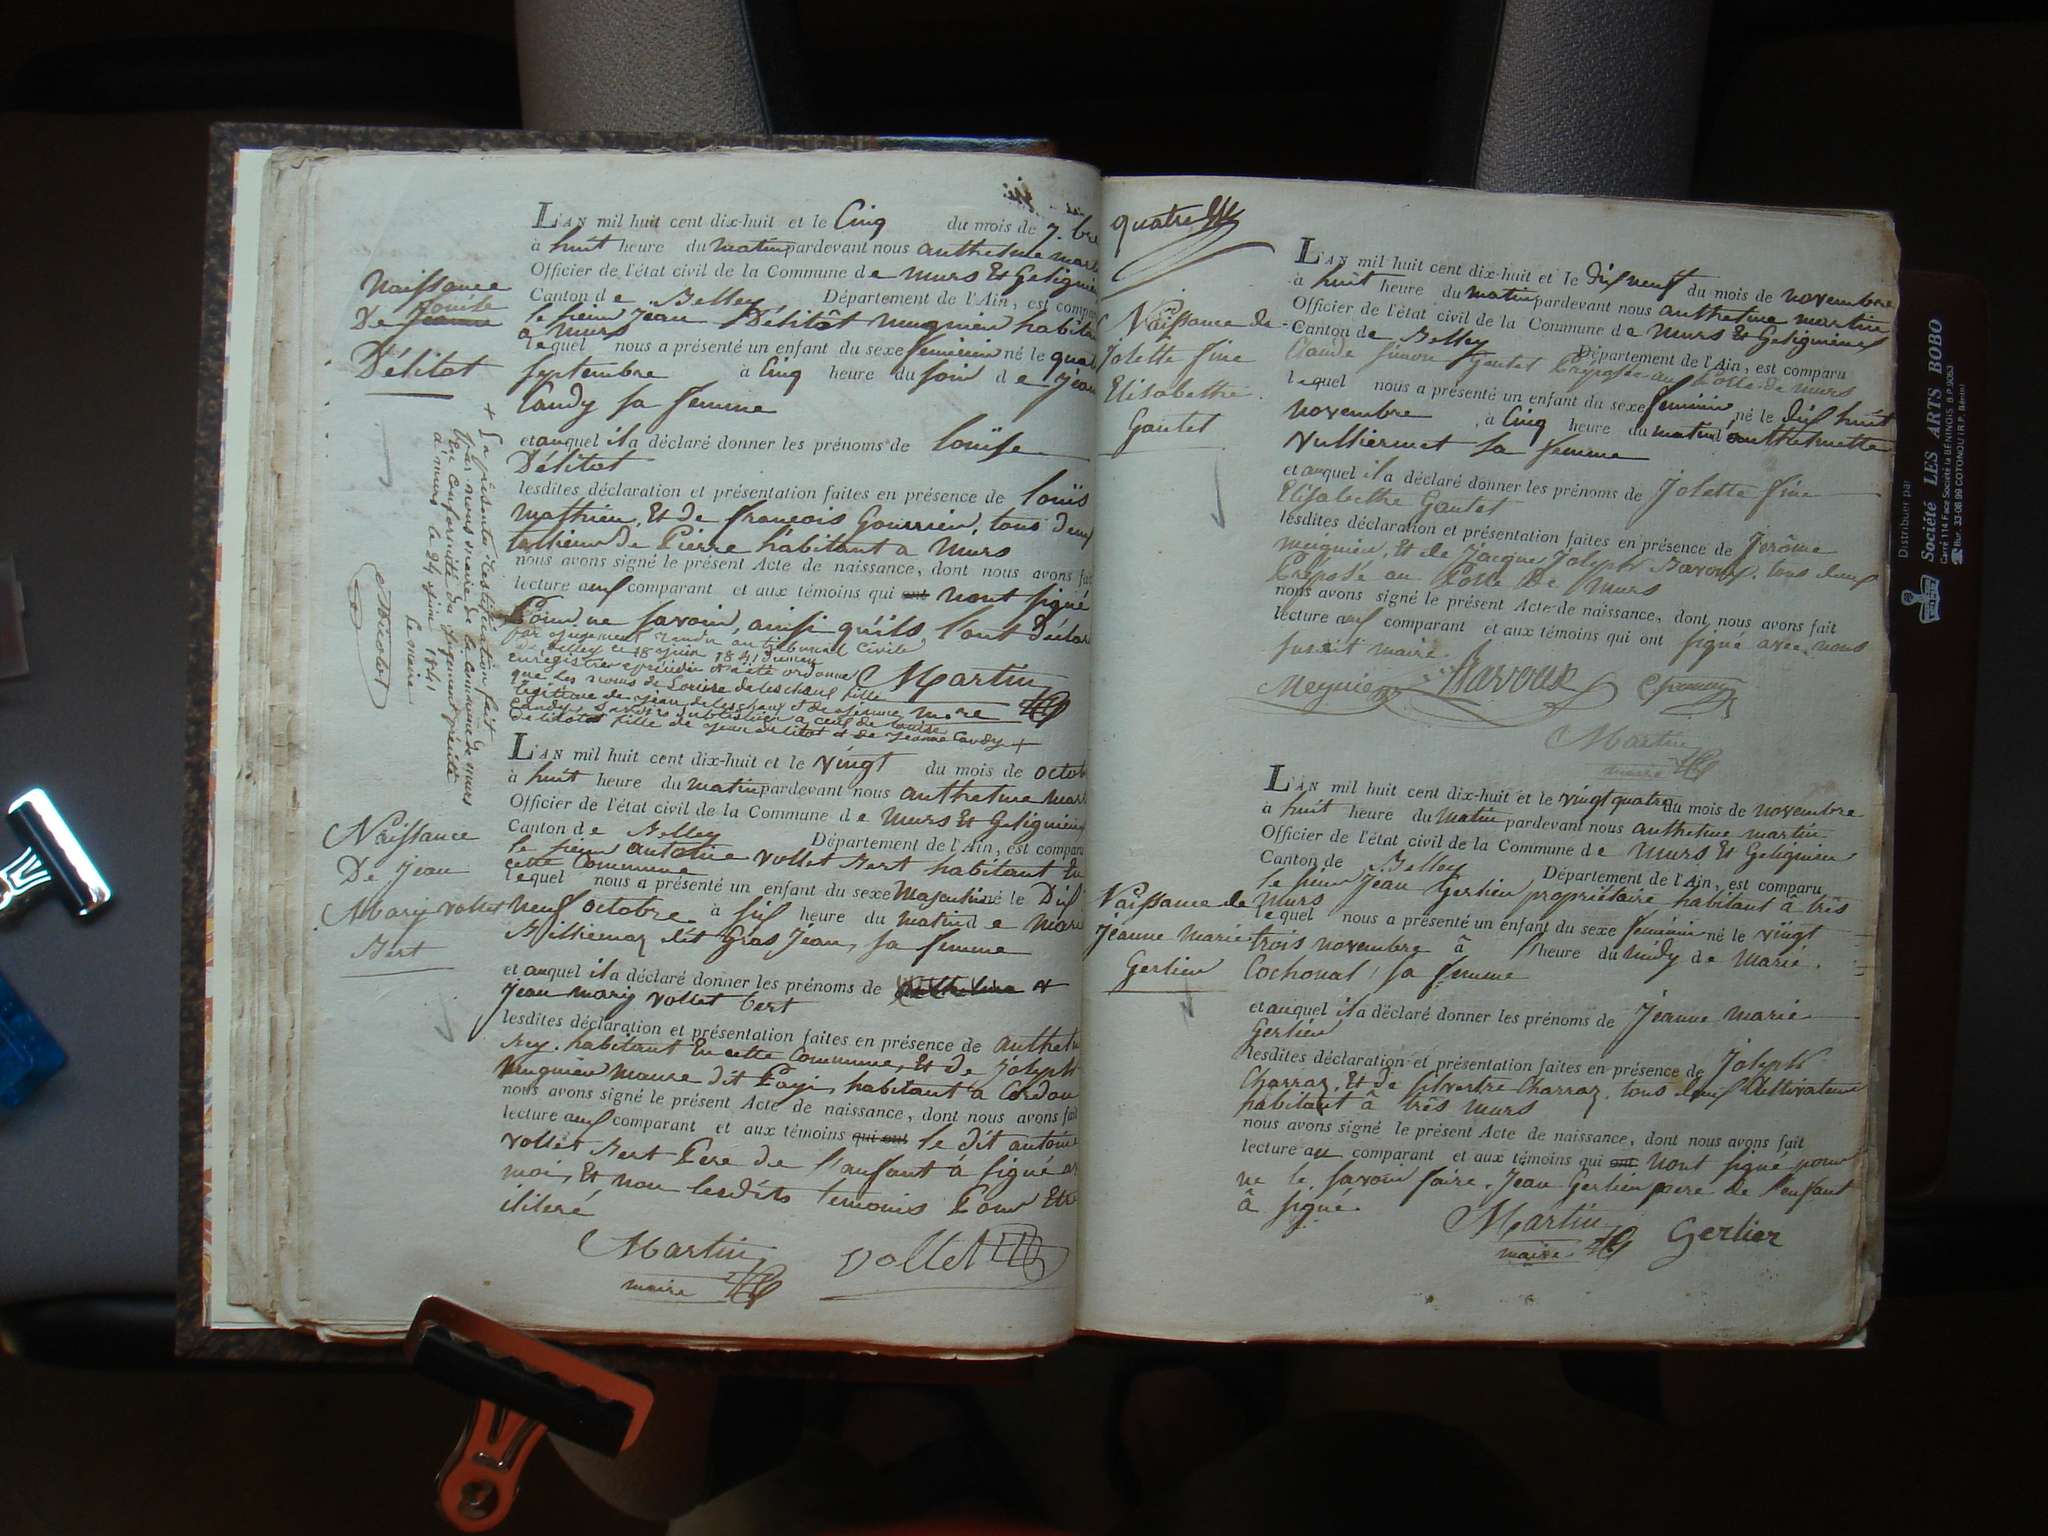 L'AN mil huit cent dix-huit et le Cinq du mois de 7.bre
à huit heure du matin pardevant nous anthelme mart
Officier de l'état civil de la Commune de murs Et Geligni
Canton de Belley Département de l'Ain, est compar
le sieur Jean Délitôt mugnien habita
a murs
lequel nous a présenté un enfant du sexe feminin né le quat
septembre à Cinq heure du soir de Jean
Candy sa femme
et auquel il a déclaré donner les prénoms de louise
Délitot
lesdites déclaration et présentation faites en présence de louis
mathieu, Et de francois Gourrien, tous deux
de Pierre habitant a Murs
nous avons signé le présent Acte de naissance, dont nous avons fait
lecture aux comparant et aux témoins qui ont n'ont signé
Pour ne savoir, ainsi qu'ils l'ont déclaré
Martin
maire
Naissance
De Jeanne
Louise
Délitot
par jugement rendu au tribunal Civile
de Belley ce 18 juin 1841 dument
enregistrer a été ordonné
que les noms de Louise deleschaux fille
légitime de Jean deleschaux et de Jeanne
Candy, seroient a ceux de louise
Delitot fille de Jean delitot et de Jeanne Candy +
+ La présente Rectification fait
par nous maire de la commune de murs
en conformité du jugement précité
a murs le 24 juin 1841
Le maire
L'AN mil huit cent dix-huit et le vingt du mois de octob
à huit heure du matin pardevant nous anthelme mart
Officier de l'état civil de la Commune de murs Et Gelignieu
Canton de Belley Département de l'Ain, est comparu
le sieur antoine vollet Bert habitant En
cette Commune
lequel nous a présenté un enfant du sexe Masculin né le Dix
neuf octobre à six heure du matin de marie
Billiemaz dit Gros Jean, sa femme
et auquel il a déclaré donner les prénoms de anthelme +
Jean mary vollet bert
lesdites déclaration et présentation faites en présence de anthelm
Rey. habitant En cette Commune, Et de Joseph
mugnien maure dit Payi, habitant a Cordon
nous avons signé le présent Acte de naissance, dont nous avons fait
lecture aux comparant et aux témoins qui ont le dit antoine
vollet Bert Pere de l'anfant à signé av
moi, Et non lesdits temoins Pour Etre
iliteré
Martin
maire
vollet
Naissance
De Jean
Mary vollet
Bert
quatre
L'AN mil huit cent dix-huit et le dix neuf du mois de novembre
à huit heure du matin pardevant nous anthelme martin
Officier de l'état civil de la Commune de murs Et Gelignieu
Canton de Belley Département de l'Ain, est comparu
Claude simon Gantet Préposée au Poste de murs
lequel nous a présenté un enfant du sexe feminin né le dix huit
novembre à Cinq heure du matin d'anthelmette
vulliermet sa femme
et auquel il a déclaré donner les prénoms de Josette fine
Elisabethe Gantet
lesdites déclaration et présentation faites en présence de Jerôme
meignien, Et de Jacques Joseph Bavoux, tous deux
Préposé au Poste de Murs
nous avons signé le présent Acte de naissance, dont nous avons fait
lecture aux comparant et aux témoins qui ont signé avec nous
susdit maire
Bavoux
Martin
maire
Naissance de
Josette fine
Elisabethe
Gantet
L'AN mil huit cent dix-huit et le vingt quatre du mois de novembre
à huit heure du matin pardevant nous anthelme martin
Officier de l'état civil de la Commune de murs Et Gelignieu
Canton de Belley Département de l'Ain, est comparu
le sieur Jean Gerlien propriétaire habitant à très
murs
lequel nous a présenté un enfant du sexe feminin né le vingt
trois novembre à l'heure du midy de Marie
Cochonat, sa femme
et auquel il a déclaré donner les prénoms de Jeanne marie
Gerlien
lesdites déclaration et présentation faites en présence de Joseph
Charraz, Et de silvestre Charraz, tous deux Cultivateur
habitant à très murs
nous avons signé le présent Acte de naissance, dont nous avons fait
lecture au comparant et aux témoins qui ont n'ont signé pour
ne le savoir faire. Jean Gerlien pere de l'enfant
à signé.
Martin
maire
Gerlier
Naissance de
Jeanne Marie
Gerlien
Distribuer par
Société LES ARTS BOBO
Carré 114 Face Société la BENINOIS B.P. 9053
Bur. 33-08 99 COTONOU (R.P. Bénin)